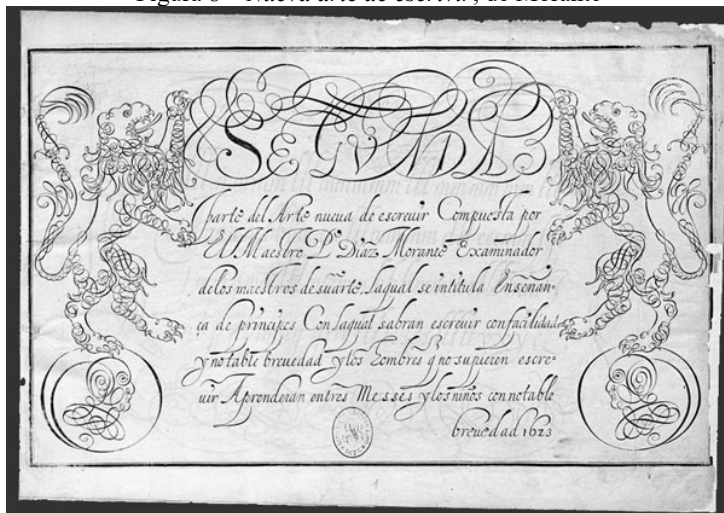 SEGVNDA
parte del Arte nueua de escreuir Compuesta por
El Maestro P.º Diaz Morante Examinador
de los maestros de su arte, la qual se intitula Enseñan-
ça de principes Con la qual sabran escreuir con facilidad
y notable breuedad y los hombres q no supieren escre-
uir Aprenderan entres Messes y los niños con notable
breuedad 1623